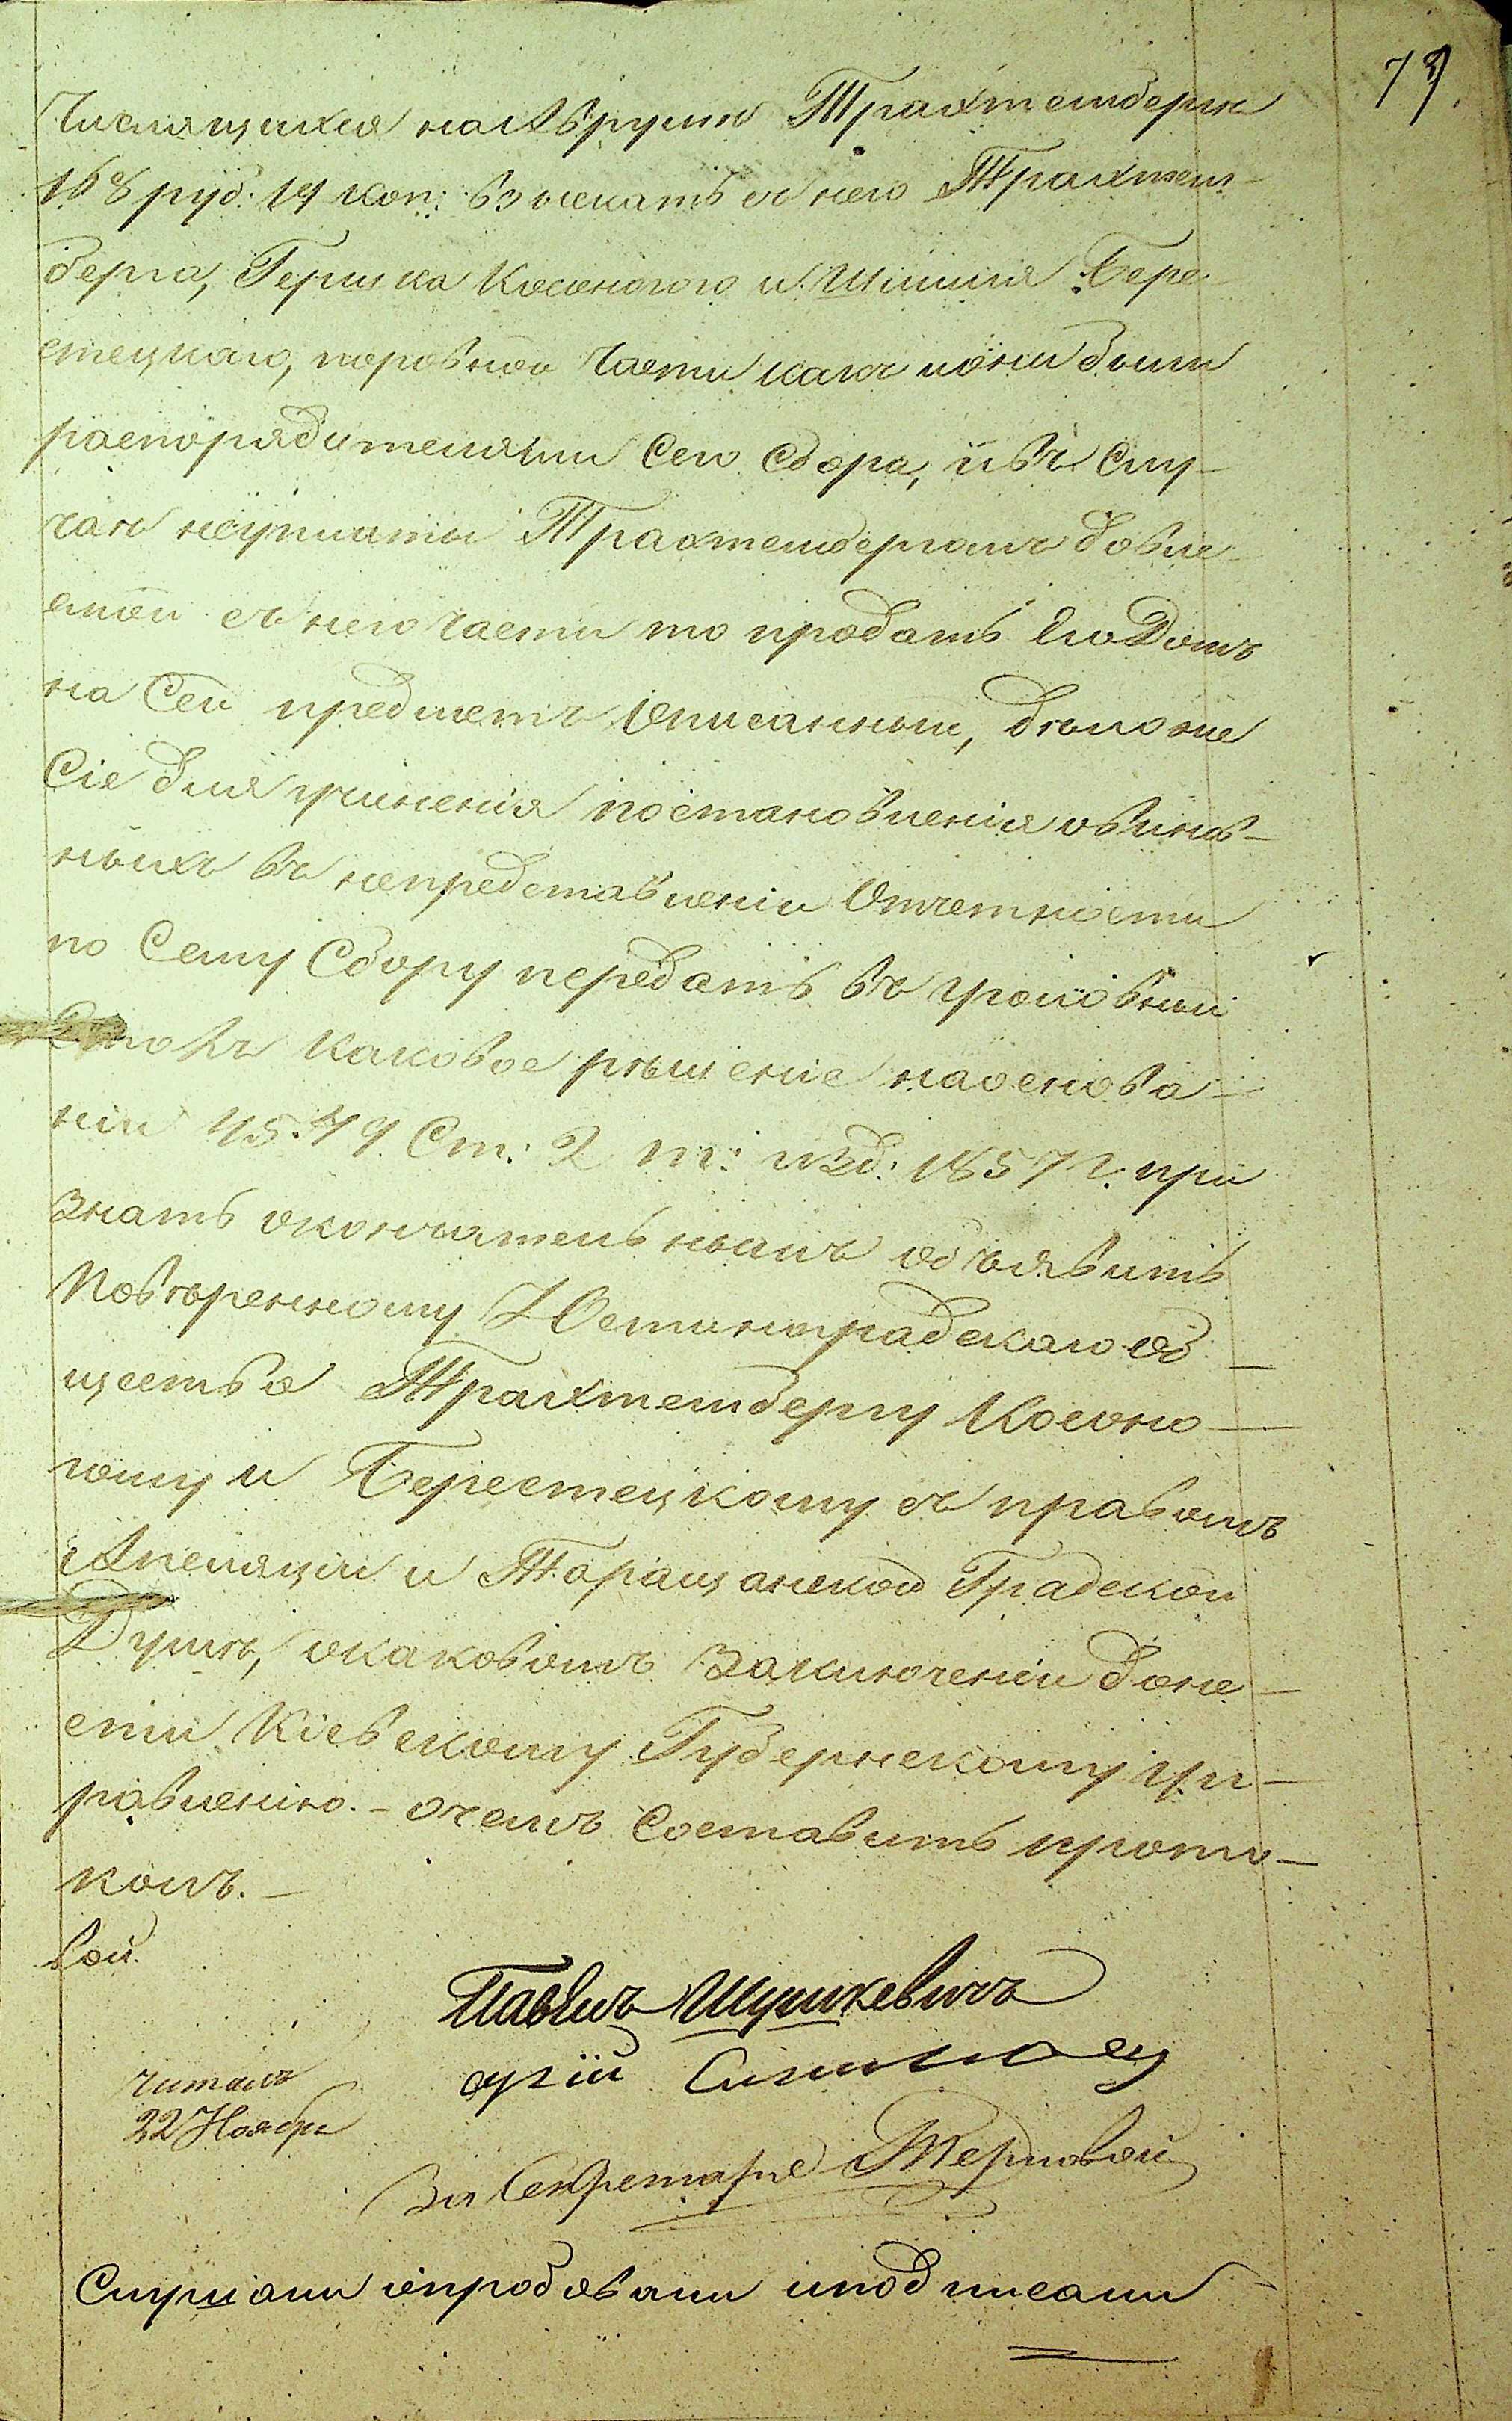 79.
Числящихся на Аврумѣ Трахтемберге
168 руб: 19 коп: взыскать съ него Трахтем-
берга, Гершка Косоногого и Шмиля Бере-
стецкаго, поровной части какъ иони были
распорядителями Сего Сбора, и въ Слу-
чаѣ неуплаты Трахтембергомъ довле-
емой съ него части то продать Его Домъ
на Сей предметъ Описанный, дѣло же
Сіе для учиненія постановленія овинов-
ныхъ въ непредставленіи Отчетности
по Сему Сбору передать въ уголовный
Столъ каковое рѣшеніе на основа-
ніи 4549 Ст: 2 т: изд: 1857 г. при
знать окончательнымъ объявить
Повѣренному Юстинградскаго Об-
щества Трахтембергу Косоно-
гому и Берестецкому съ правомъ
Апеляціи и Таращанской Градской
Думѣ, о каковомъ Заключеніи доне-
сти Кіевскому Губернскому Уп-
равленію. - о чемъ Составить прото-
колъ. -
вой.
Павелъ Шушкевичъ
читалъ
22 Ноябр
За Секретаря Терновой
Слушали апробовали иподписали